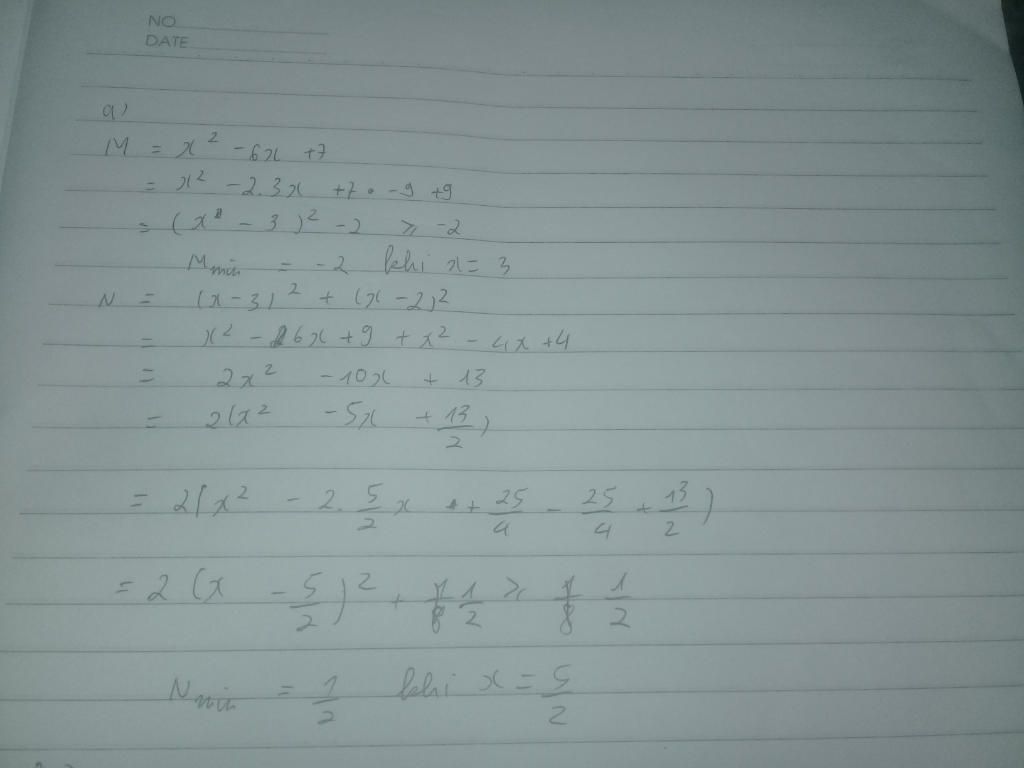 NO
DATE
a)
M = x² - 6x + 7
= x² - 2.3x + 7 - 9 + 9
= (x - 3)² - 2 ≥ -2
Mmin = -2 khi x = 3
N = (x - 3)² + (x - 2)²
= x² - 6x + 9 + x² - 4x + 4
= 2x² - 10x + 13
= 2(x² - 5x + 13/2)
= 2(x² - 2. 5/2 x + 25/4 - 25/4 + 13/2)
= 2(x - 5/2)² + 1/2 ≥ 1/2
Nmin = 1/2 khi x = 5/2